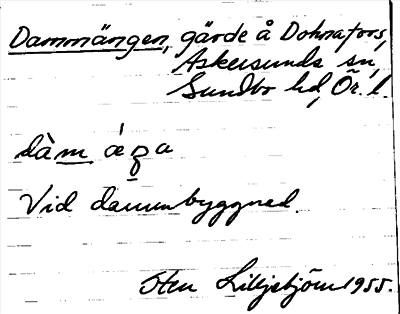 Dammängen, gärde å Dohnafors,
Askersunds sn,
Sundbo hd, Ör. l.
Vid dammbyggnad.
Sten Lilljebjörn 1955.